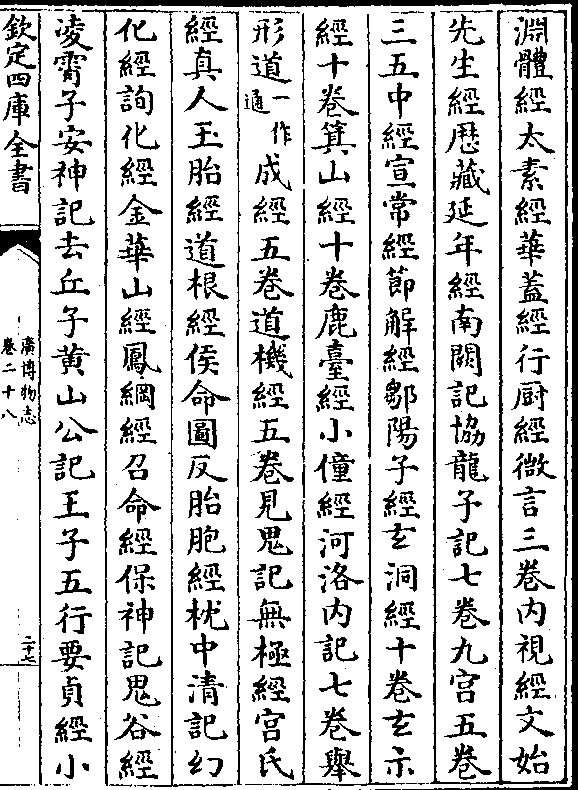 淵體經太素經華蓋經行厨經微言三卷内視經文始
先生經歴藏延年經南闕記協龍子記七卷九宫五卷
三五中經宣常經節解經鄒陽子經𤣥洞經十卷𤣥示
經十卷箕山經十卷鹿臺經小僮經河洛内記七卷舉
形道一作通成經五卷道機經五卷見鬼記無極經宫氏
經真人玉胎經道根經侯命圖反胎胞經枕中清記幻
化經詢化經金華山經鳳綱經召命經保神記鬼谷經
凌霄子安神記去丘子黄山公記王子五行要貞經小
欽定四庫全書
廣博物志
卷二十八
二十七